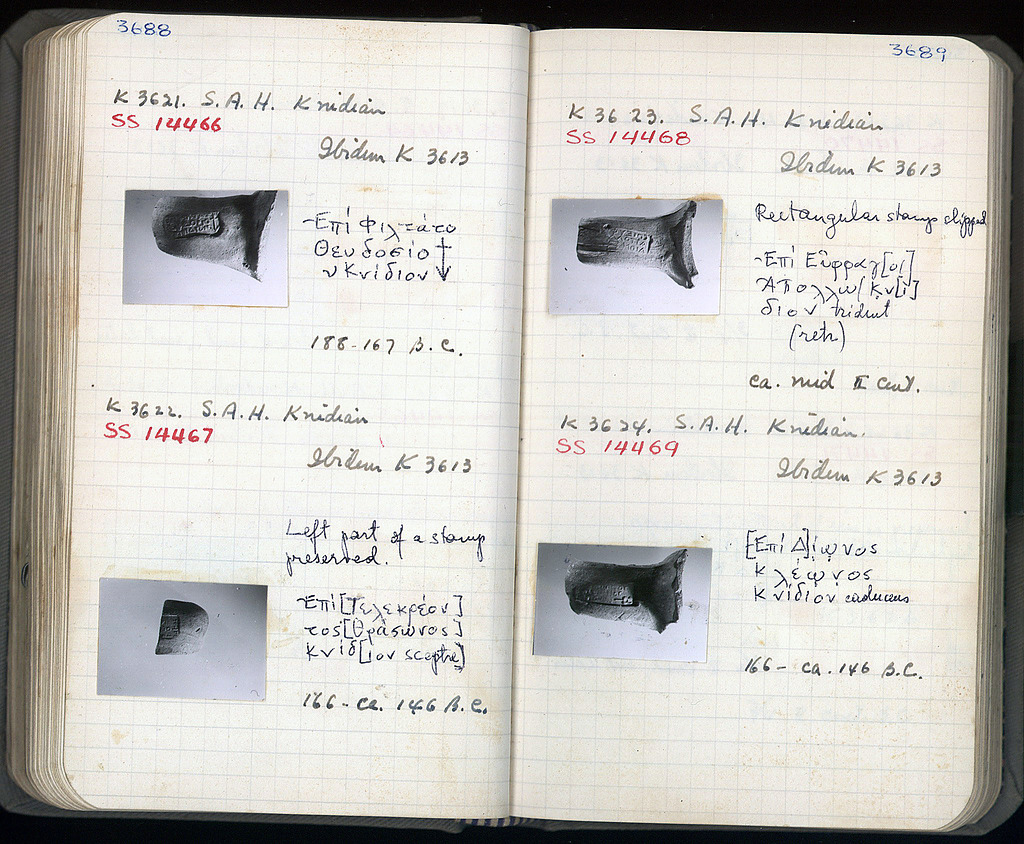 3688
K 3621. S.A.H. Knidian
SS 14466
Ibidem K 3613
Ἐπὶ Φιλτάτο
Θευδοσίο
υ Κνίδιον
188-167 B.C.
K 3622. S.A.H. Knidian
SS 14467
Ibidem K 3613
Left part of a stamp
preserved.
Ἐπὶ [Τελεκρέον]
τος [Θράσωνος]
Κνίδ[ιον sceptre]
166 - ca. 146 B.C.
3689
K 3623. S.A.H. Knidian
SS 14468
Ibidem K 3613
Rectangular stamp chipped
Ἐπὶ Εὐφραγ[οι]
Ἀπολλω/Κν[ί]
διον trident
(retr)
ca. mid II cent.
K 3624. S.A.H. Knidian.
SS 14469
Ibidem K 3613
[Ἐπὶ Δ]ίωνος
Κλέωνος
Κνίδιον caduceus
166 - ca. 146 B.C.